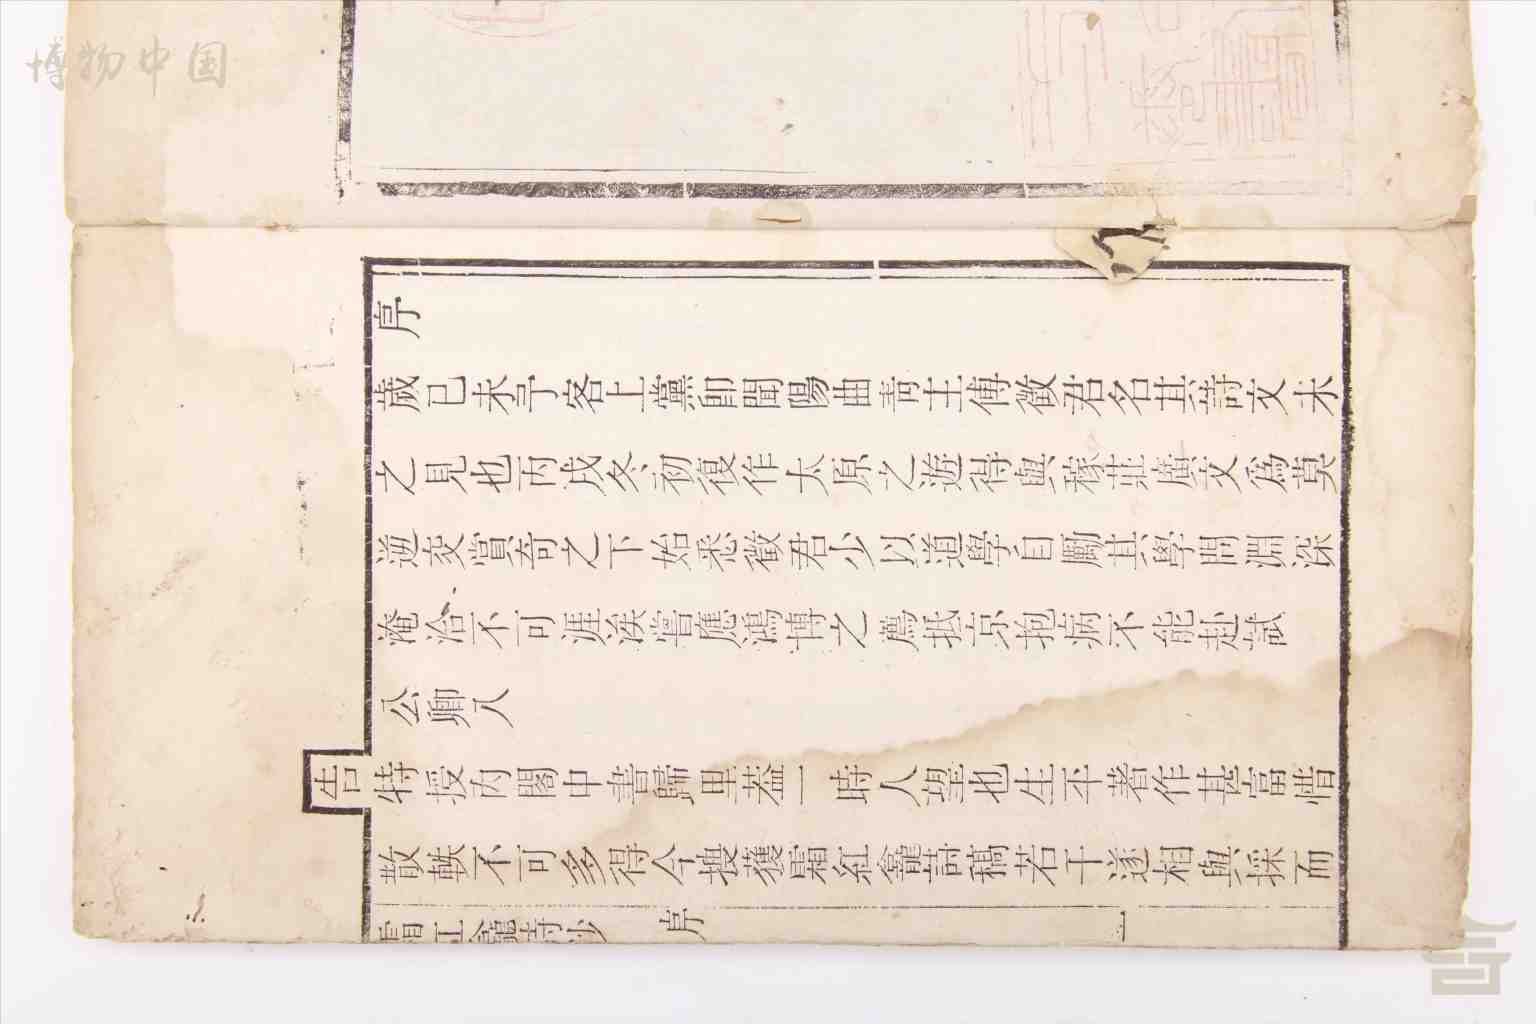 博物中国
序
歲己未予客上黨即聞陽曲奇士傅徵君名其詩文未
之見也丙戌冬初復作太原之遊得與稼莊廣文爲莫
逆交賞奇之下始悉徵君少以道學自勵其學問淵深
淹洽不可涯涘嘗應鴻博之薦抵京抱病不能赴試
公卿入
告特授內閣中書歸里葢一時人望也生平著作甚富惜
散軼不可多得今搜獲霜紅龕詩稿若干遂相與採而
霜紅龕詩抄 序 一